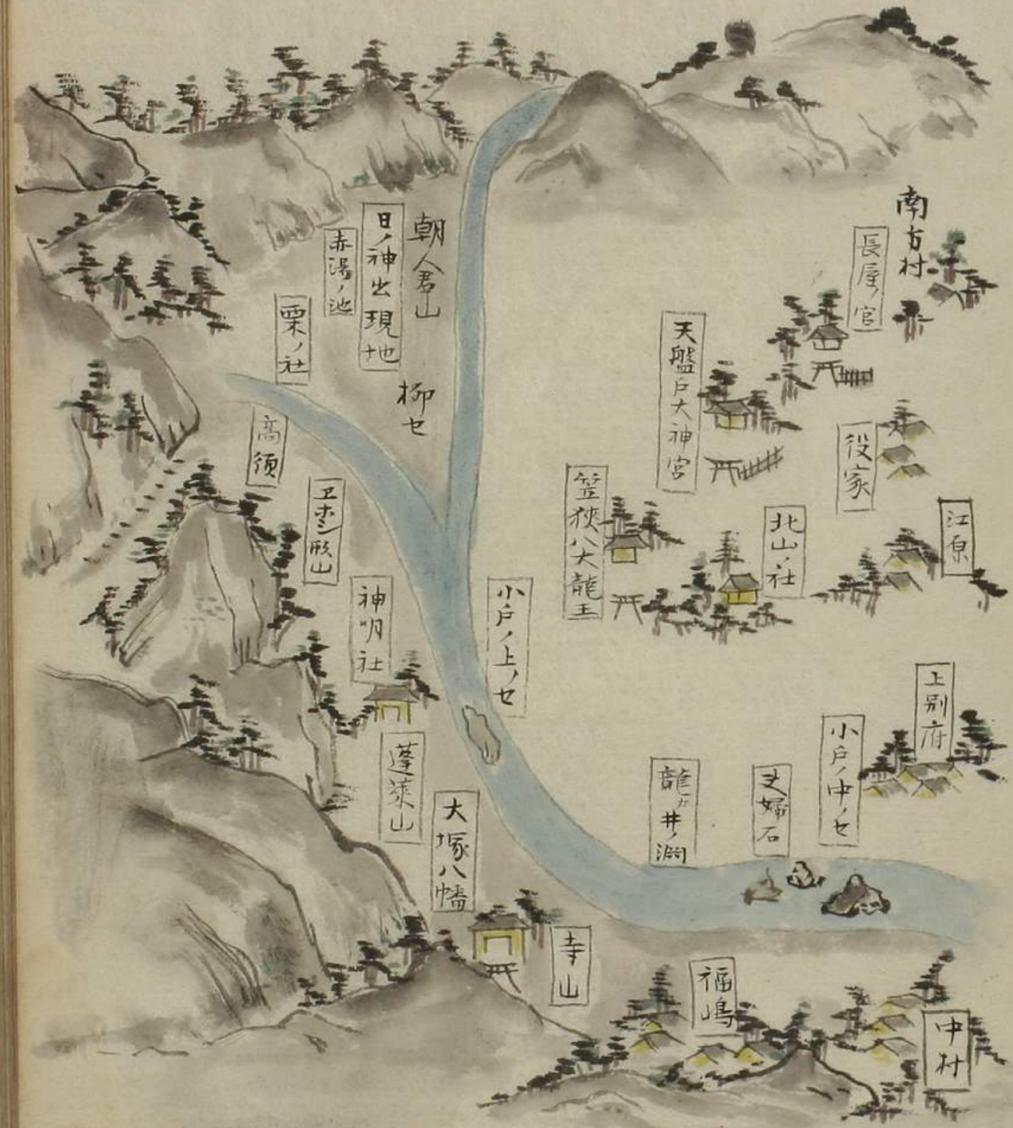 南方村
長屋ノ宮
天盤戸大神宮
役家
江原
北山社
笠狭八大龍王
上別府
小戸ノ中ノセ
夫婦石
龍ガ井ノ渕
小戸ノ上ノセ
朝倉山
日ノ神出現地
赤湯ノ池
柳セ
栗ノ社
高須
神明社
蓬莱山
大塚八幡
寺山
福嶋
中村